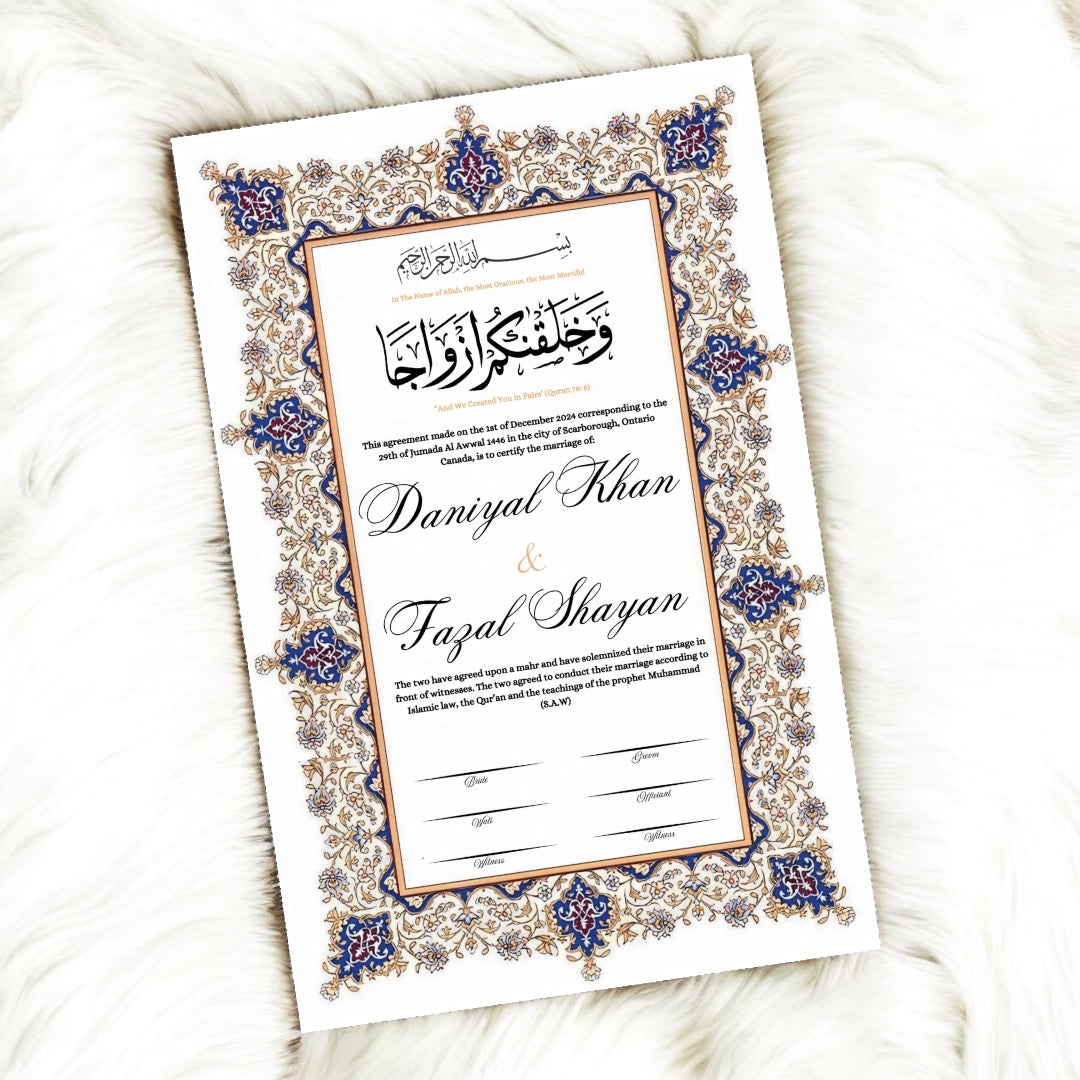 بسم الله الرحمن الرحيم
In The Name of Allah, the Most Gracious, the Most Merciful
وَخَلَقْنَكُمْ اَزْوَاجًا
"And We Created You in Pairs" (Quran 78: 8)
This agreement made on the 1st of December 2024 corresponding to the
29th of Jumada Al Awwal 1446 in the city of Scarborough, Ontario
Canada, is to certify the marriage of:
Daniyal Khan
&
Fazal Shayan
The two have agreed upon a mahr and have solemnized their marriage in
front of witnesses. The two agreed to conduct their marriage according to
Islamic law, the Qur'an and the teachings of the prophet Muhammad
(S.A.W)
Bride
Groom
Wali
Officiant
Witness
Witness